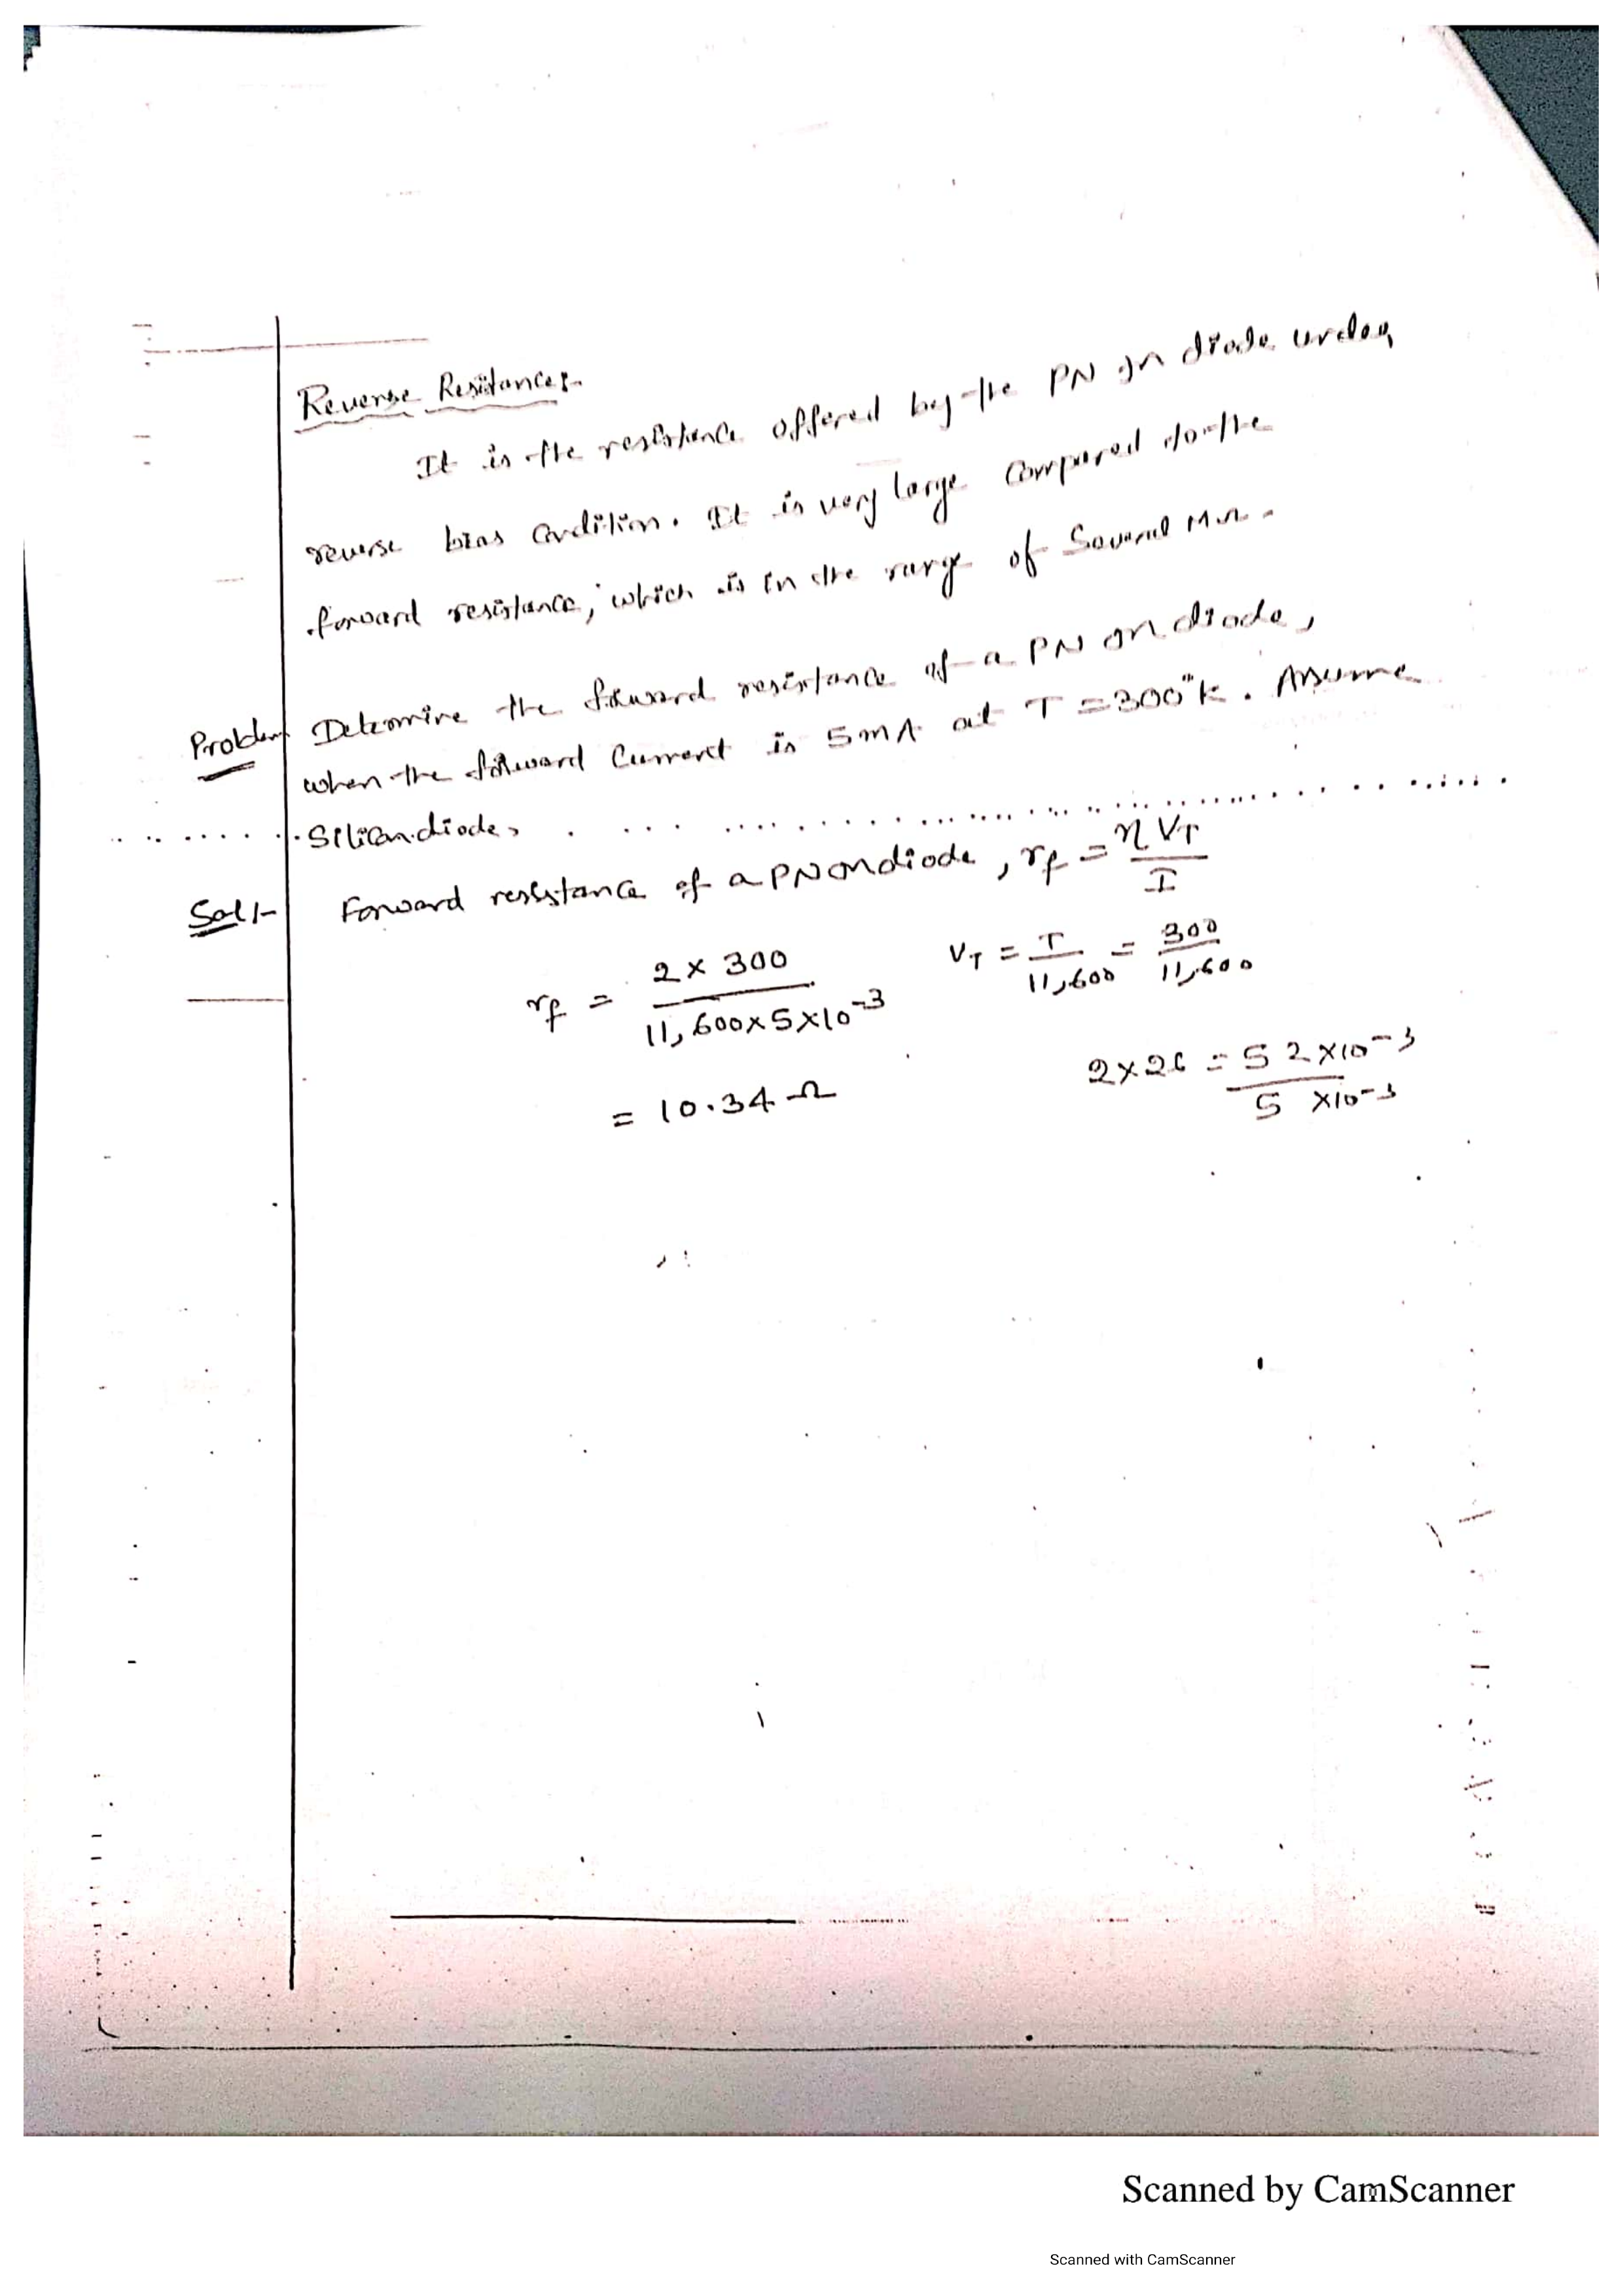 Reverse Resistance:-
It is the resistance offered by the PN Jn diode under
reverse bias condition. It is very large compared to the
forward resistance, which is in the range of Several MΩ.
Problem Determine the forward resistance of a PN Jn diode,
when the forward current is 5mA at T = 300°K. Assume
Silicon diode.
Sol:- Forward resistance of a PN Jn diode, rf = η VT / I
rf = 2 × 300 / 11,600 × 5 × 10⁻³ VT = T / 11,600 = 300 / 11,600
= 10.34 Ω 2×26 = 52 ×10⁻³ / 5 ×10⁻³
Scanned by CamScanner
Scanned with CamScanner